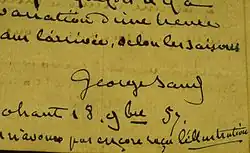 variation d'une heure
dans l'arrivée, selon les saisons
George Sand
Nohant 18. 9bre 57.
n'avons pas encore reçu l'illustration